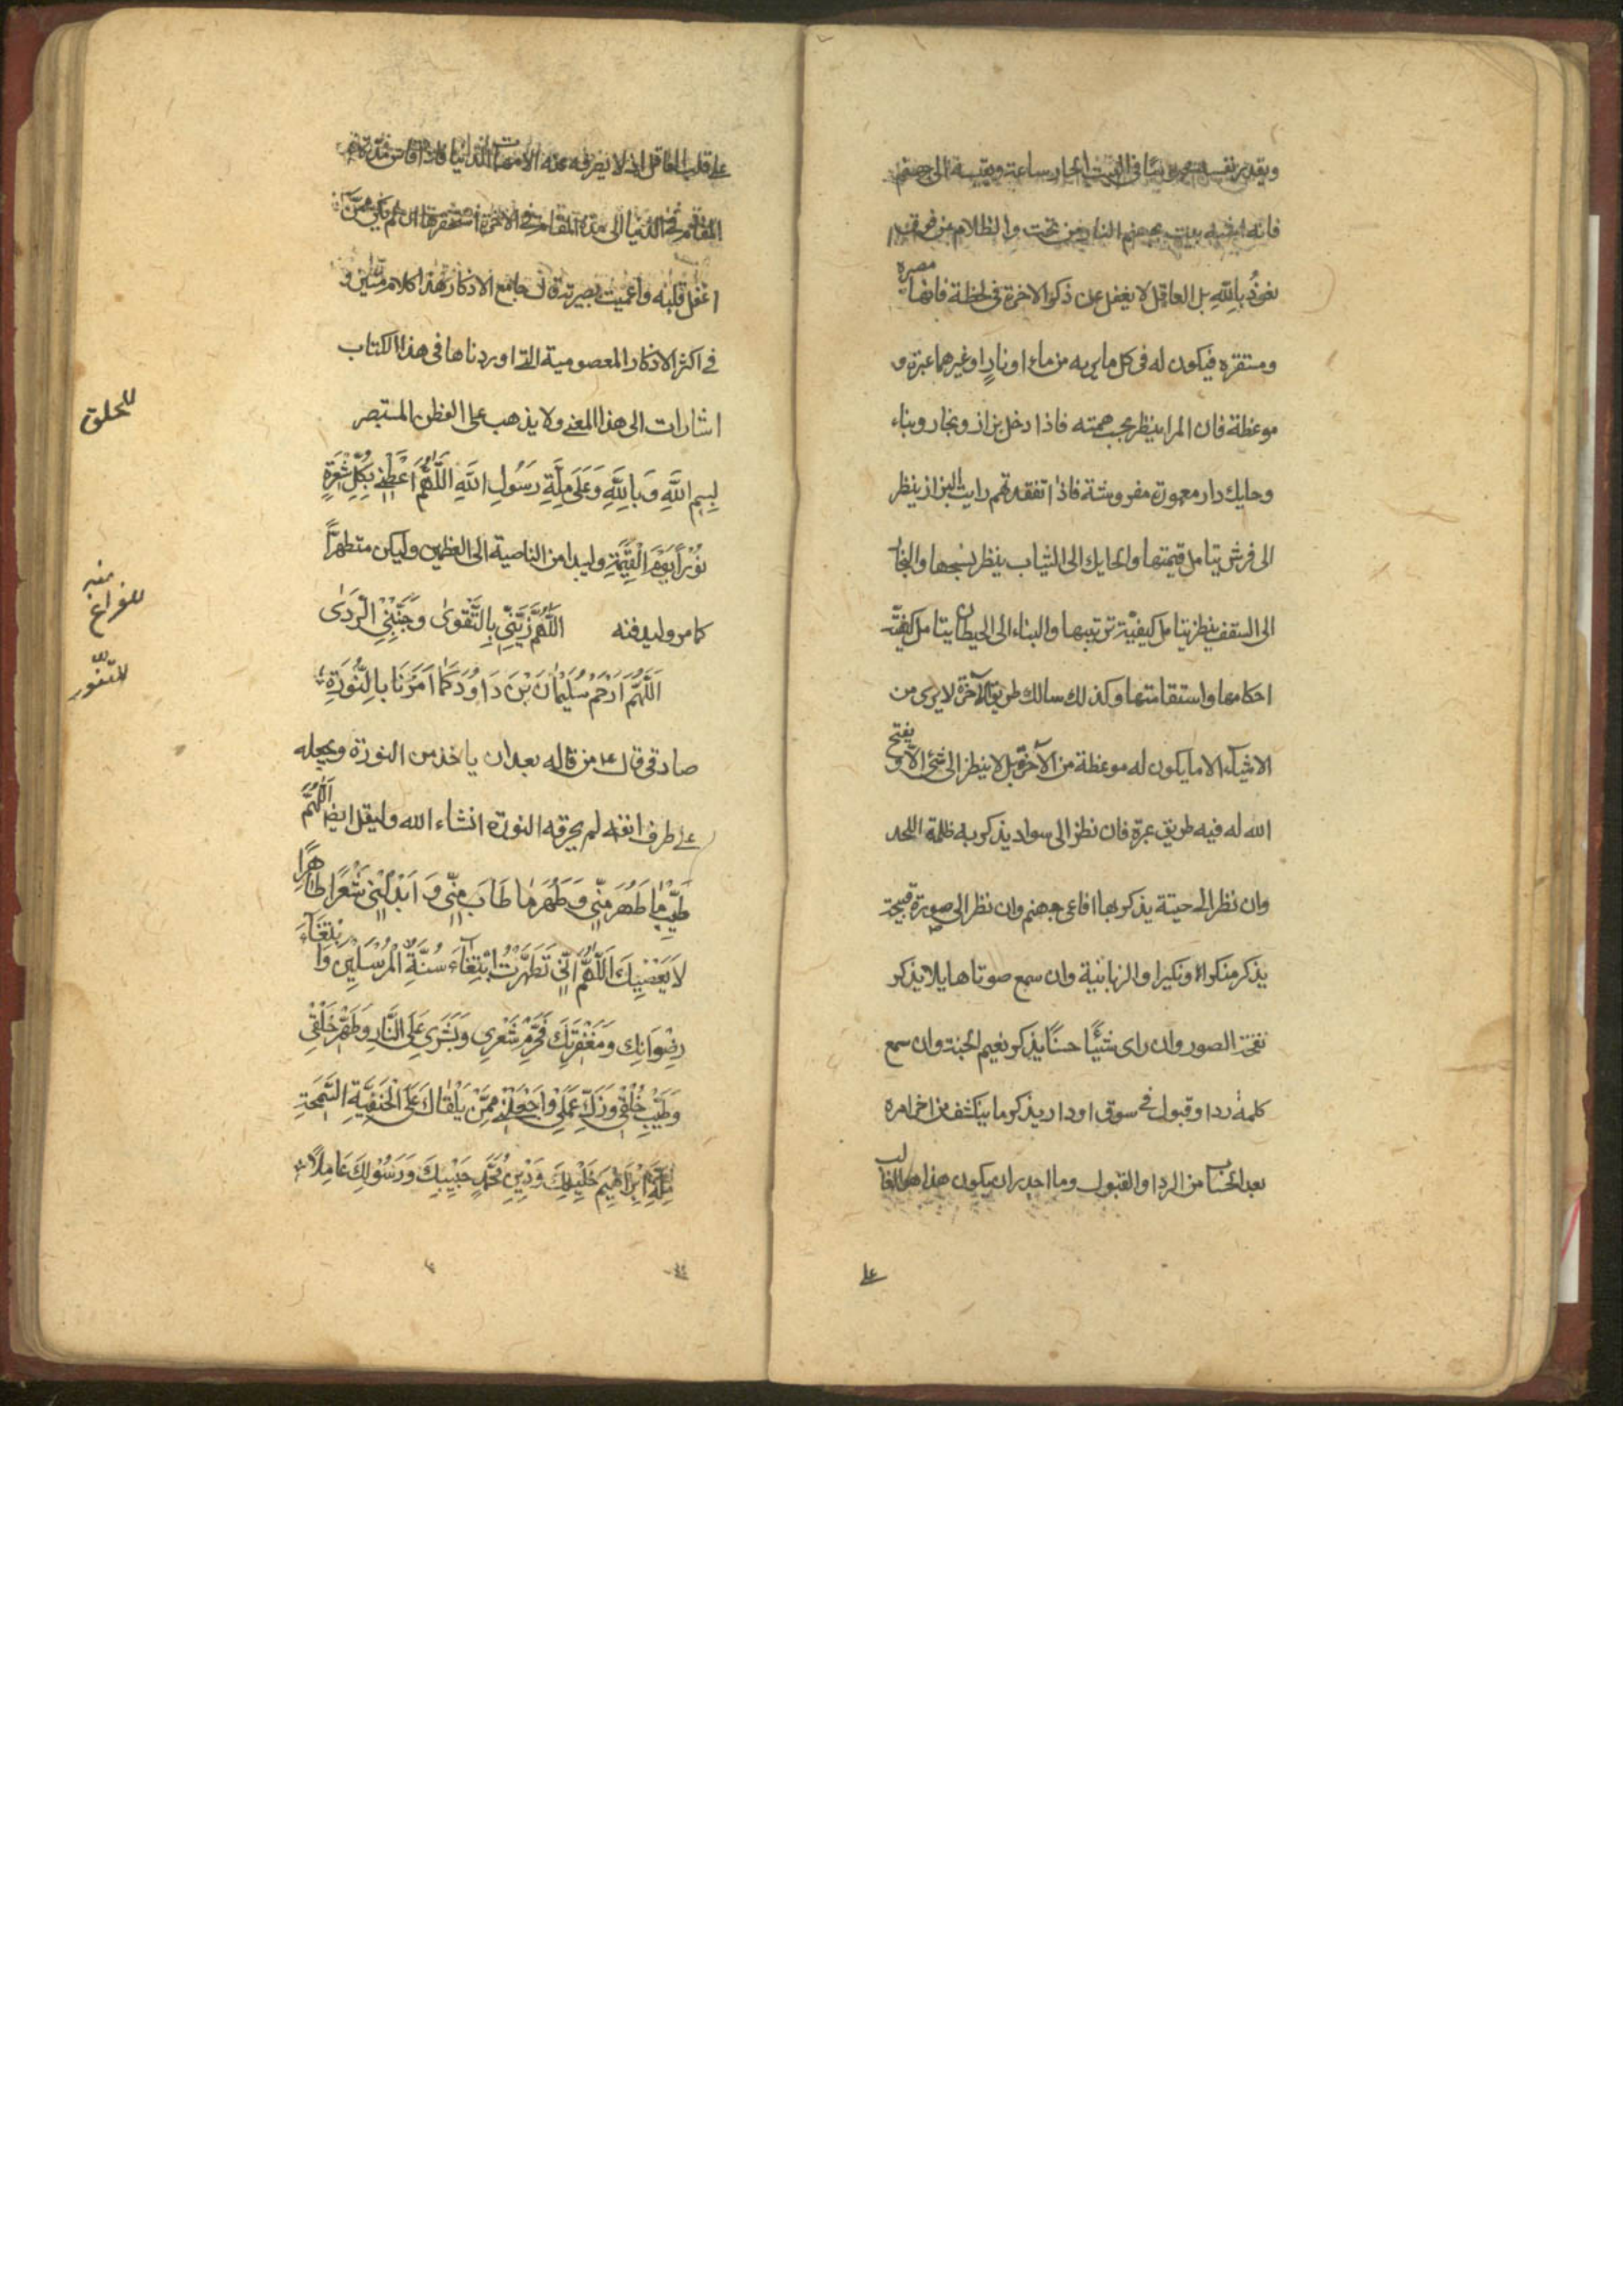 ويقدر نفسه محبوسا فى البيت الحار ساعة ويقيسه الى جهنم
فانه اشبه بيت بجهنم النار من تحت والظلام من فوق
نعوذُ بِاللهِ بل العاقل لا يغفل عن ذكر الاخرة فى لحظة فانها مصيره
ومستقره فيكون له فى كل ما يريه من ماء او نارٍ او غيرهما عبرة و
موعظة فان المرا ينظر بحسب همته فاذا دخل بزاز ونجار وبناء
وحايك دار معمورة مفروشة فاذا تفقدتهم رايت البزاز ينظر
الى فرش يتامل قيمتها والحايك الى الثياب ينظر نسجها والنجار
الى السقف ينظر يتامل كيفيّة ترتيبها والبناء الى الحيطان يتامل كيفيّة
احكامها واستقامتها وكذلك سالك طريق الآخرة لا يرى من
الاشيآء الا ما يكون له موعظة من الآخرة بل لا ينظر الى شئ الاّ و يفتح
الله له فيه طريق عبرة فان نظر الى سواد يذكر به ظلمة اللحد
وان نظر الى حيتة يذكر بها افاعى جهنم وان نظر الى صورة قبيحة
يذكر منكرا ونكيرا والزبانية وان سمع صوتا هايلا يذكر
نفخة الصور وان راى شيئًا حسنًا يذكر نعيم الجنة وان سمع
كلمة رد او قبول فى سوق او دار يذكر ما ينكشف من اخر امره
بعد الحساب من الرد او القبول وما اجدر ان يكون هذا هو الغالب
على
على قلب العاقل اذ لا يصرفه عنه الا مهمات الدنيا فاذا قاس مدة
المقام فى الدنيا الى مدة المقام فى الاخرة استحقرها ان لم يكن ممن
اغفل قلبه واعميت بصيرته قال جامع الاذكار هذا كلام متين و
فى اكثر الاذكار المعصومية التى اوردناها فى هذا الكتاب
اشارات الى هذا المعنى ولا يذهب على الفطن المستبصر
للحلق
بِسمِ اللهِ وَبِاللهِ وَعَلى مِلَّةِ رَسُولِ اللهِ اَللّهُمَّ اَعْطِنى بِكُلِّ شَعْرَةٍ
نُوْرًا يَوْمَ الْقِيمَةِ وليبدا من الناصية الى العظمين وليكن متطهرًا
للفراغ منه
كما مر وليدفنه اَللّهُمَّ زَيِّنِّى بِالتَّقْوى وَجَنِّبْنِى الرَّدى
للتنور
اَللّهُمَّ ارْحَمْ سُلَيْمانَ بْنَ دَاوُدَ كَمَا اَمَرَنَا بِالنُّورَةِ
صادقى قال ع من قاله بعد ان ياخذ من النورة ويجعله
على طرف انفه لم يحرقه النورة انشاء الله وليقل ايضا اَللّهُمَّ
طَيِّبْ ما طَهُرَ مِنّى وَطَهِّرْ ما طَابَ مِنّى وَ اَبْدِلْنِى شَعْرًا طَاهِرًا
لَا يَعْصِيكَ اَللّهُمَّ اِنّى تَطَهَّرْتُ ابْتِغَاءَ سُنَّةِ الْمُرْسَلِيْنَ وَابْتِغَآءَ
رِضْوَانِكَ وَمَغْفِرَتِكَ فَحَرِّمْ شَعْرِى وَبَشَرِى عَلَى النَّارِ وَطَهِّرْ خَلْقِى
وَطَيِّبْ خُلْقِى وَزَكِّ عَمَلِى وَاجْعَلْنِى مِمَّنْ يَلْقَاكَ عَلَى الْحَنِفِيَّةِ السَّمْحَةِ
مِلَّةِ اِبْرَاهِيمَ خَلِيْلِكَ وَدِيْنِ مُحَمَّدٍ حَبِيْبِكَ وَرَسُوْلِكَ عَامِلًا